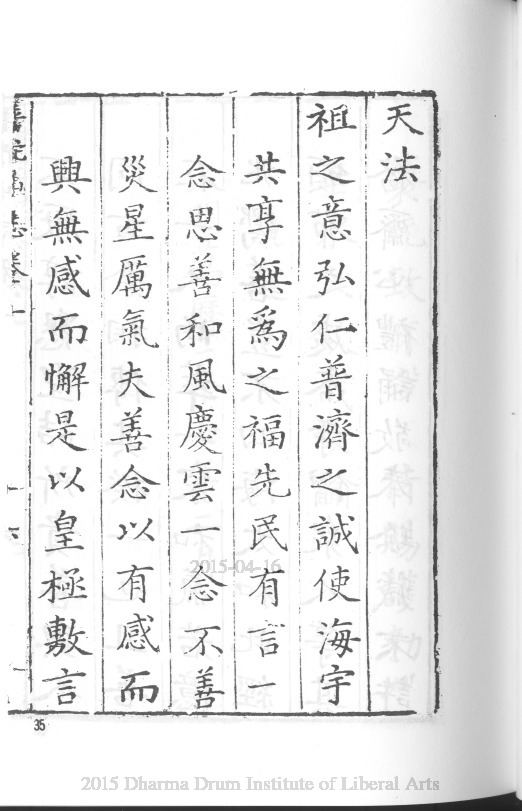 天法
祖之意弘仁普濟之誠使海宇
共享無爲之福先民有言一
念思善和風慶雲一念不善
災星厲氣夫善念以有感而
興無感而懈是以皇極敷言
35
2015-04-16
2015 Dharma Drum Institute of Liberal Arts